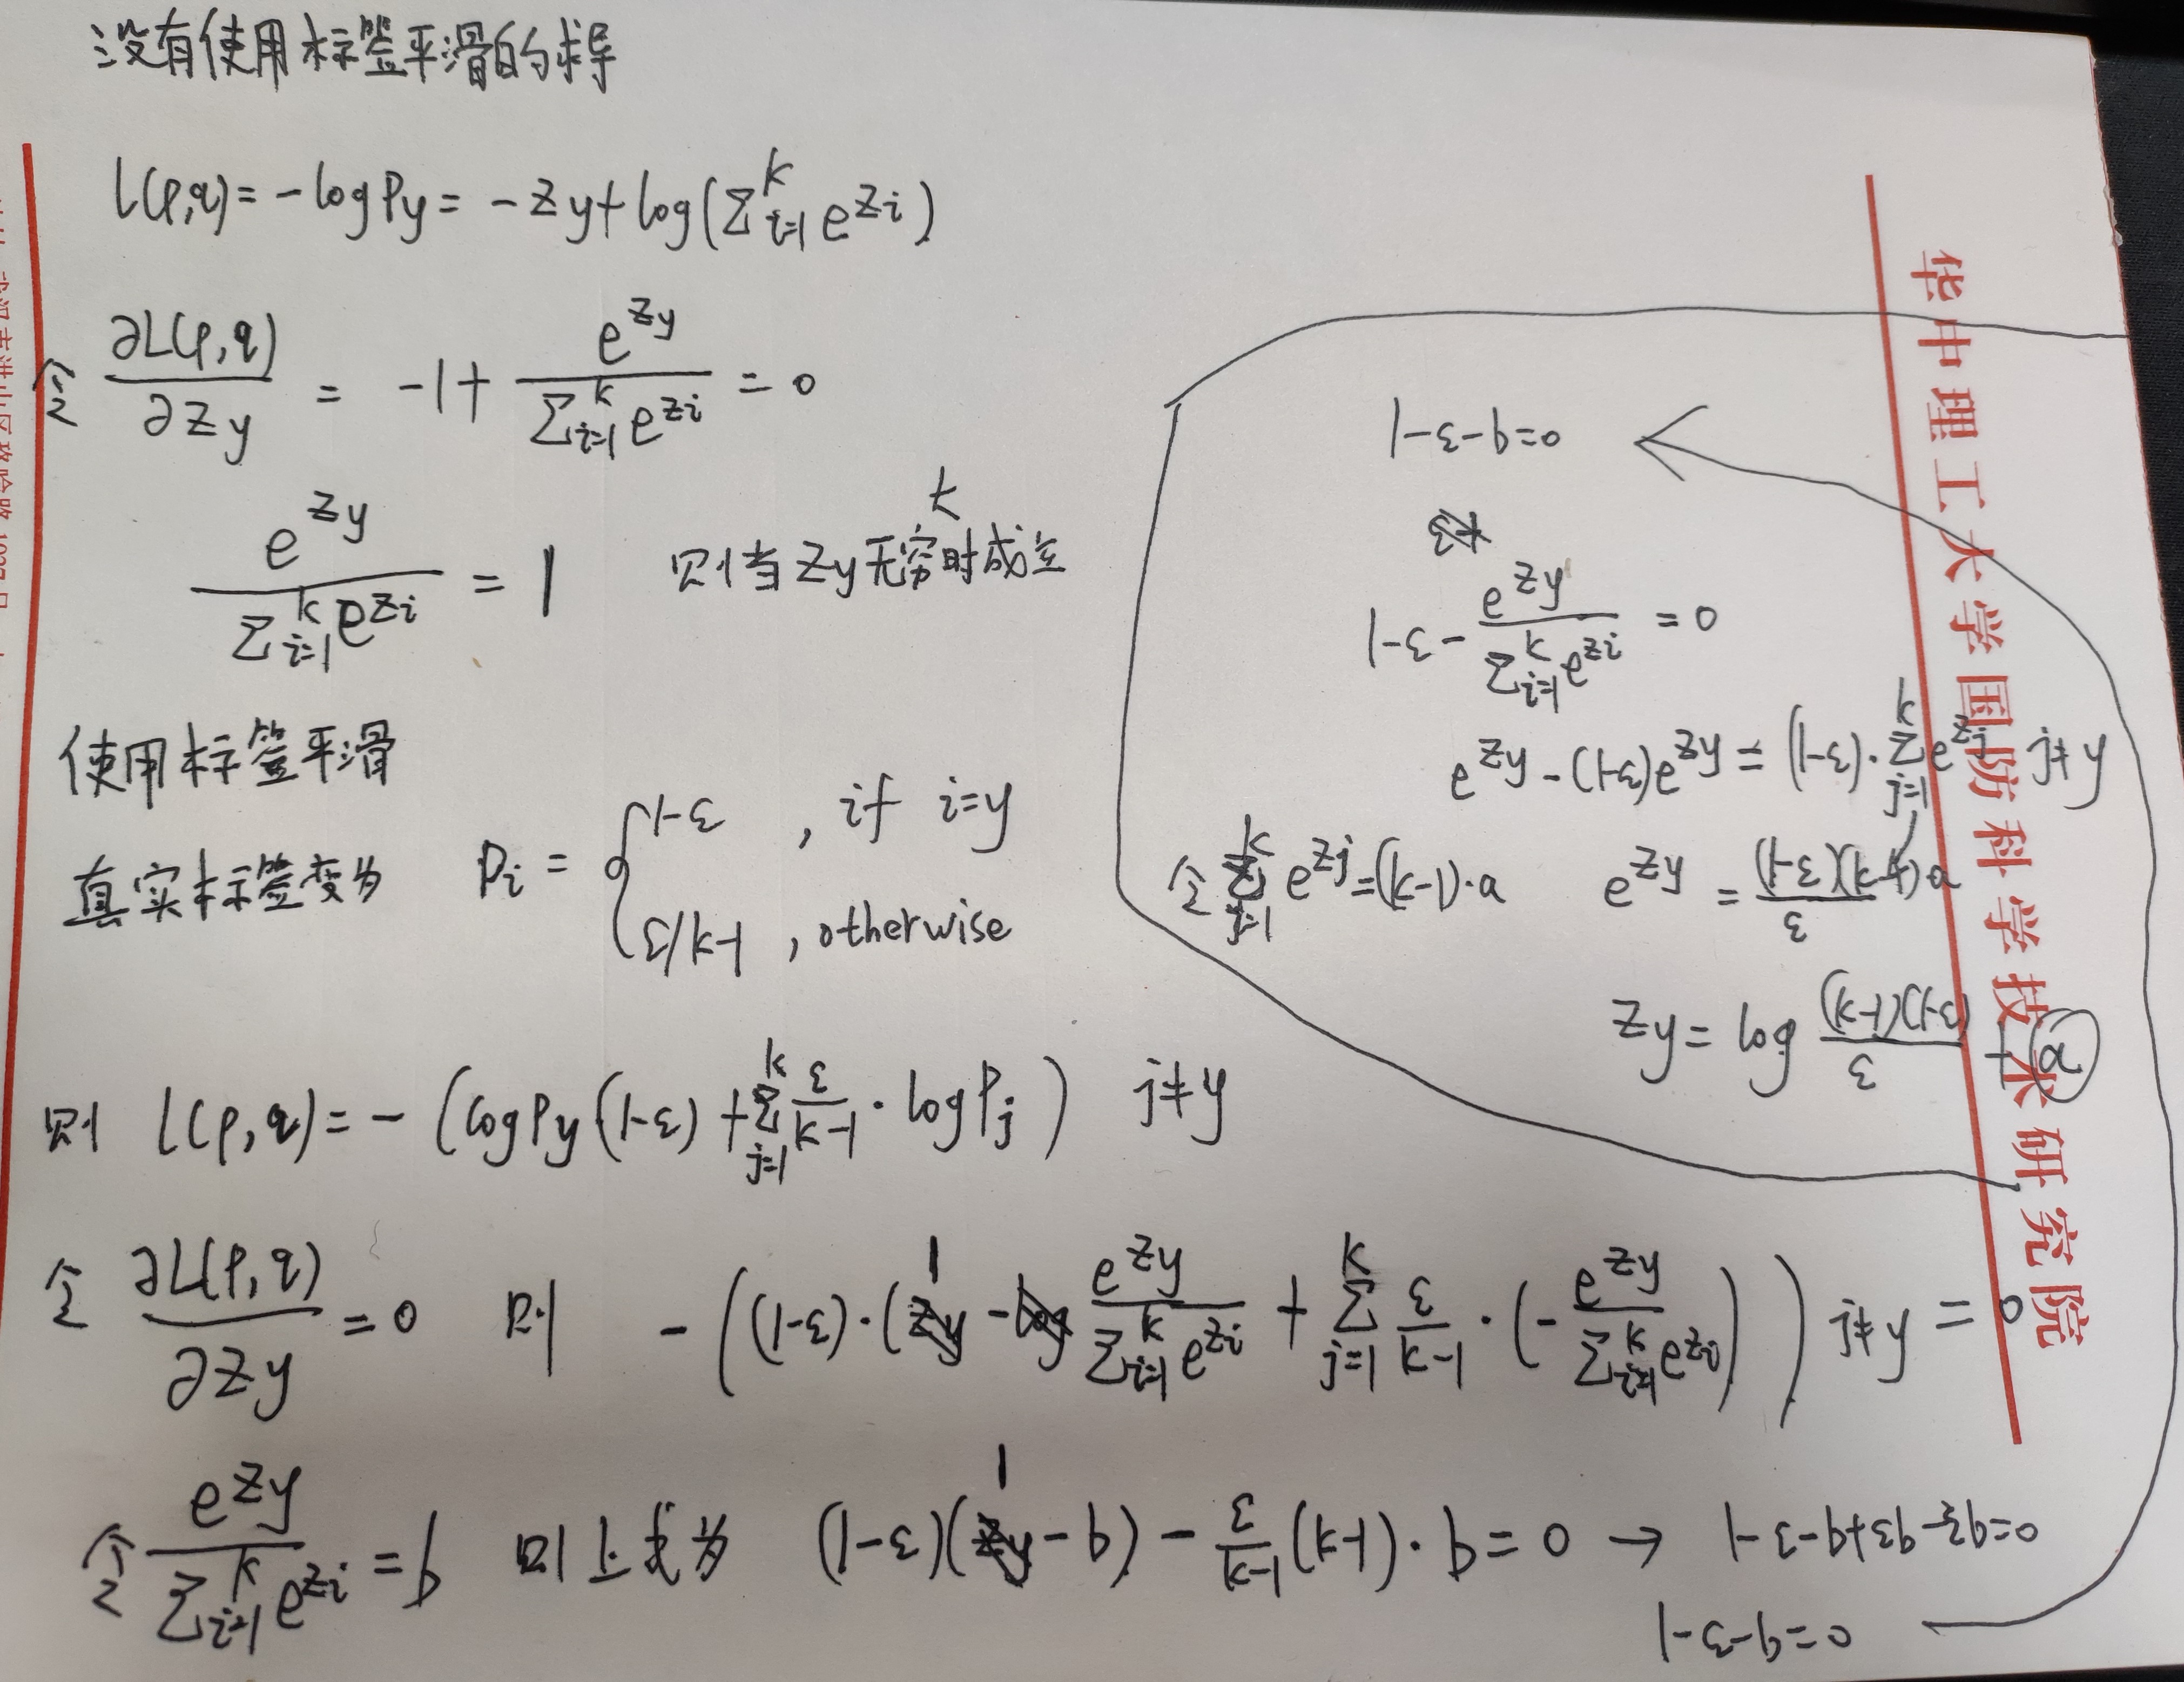 没有使用标签平滑的求导
L(p,q)=-logPy=-Zy+log(∑_{i=1}^{K} e^{Zi})
令 ∂L(p,q)/∂Zy = -1+ e^{Zy}/∑_{i=1}^{K} e^{Zi} = 0
e^{Zy}/∑_{i=1}^{K} e^{Zi} = 1 则当Zy无穷大时成立
使用标签平滑
真实标签变为 Pi = { 1-ε , if i=y
ε/K-1 , otherwise
则 L(p,q)=-(logPy(1-ε)+∑_{j=1}^{K} ε/(K-1)·logPj) j≠y
令 ∂L(p,q)/∂Zy =0 则 -((1-ε)·(1- e^{Zy}/∑_{i=1}^{K} e^{Zi} + ∑_{j=1}^{K} ε/(K-1)·(-e^{Zy}/∑_{i=1}^{K} e^{Zi})) j≠y =0
令 e^{Zy}/∑_{i=1}^{K} e^{Zi} =b 则上式为 (1-ε)(1-b)-ε/(K-1)(K-1)·b=0 → 1-ε-b+εb-εb=0
1-ε-b=0
1-ε-b=0
1-ε- e^{Zy}/∑_{i=1}^{K} e^{Zi} =0
e^{Zy}-(1-ε)e^{Zy}=(1-ε)·∑_{j=1}^{K} e^{Zj} j≠y
令 ∑_{j=1}^{K} e^{Zj}=(K-1)·a e^{Zy} = (1-ε)(K-1)·a/ε
Zy=log (K-1)(1-ε)/ε + α
华中理工大学国防科学技术研究院